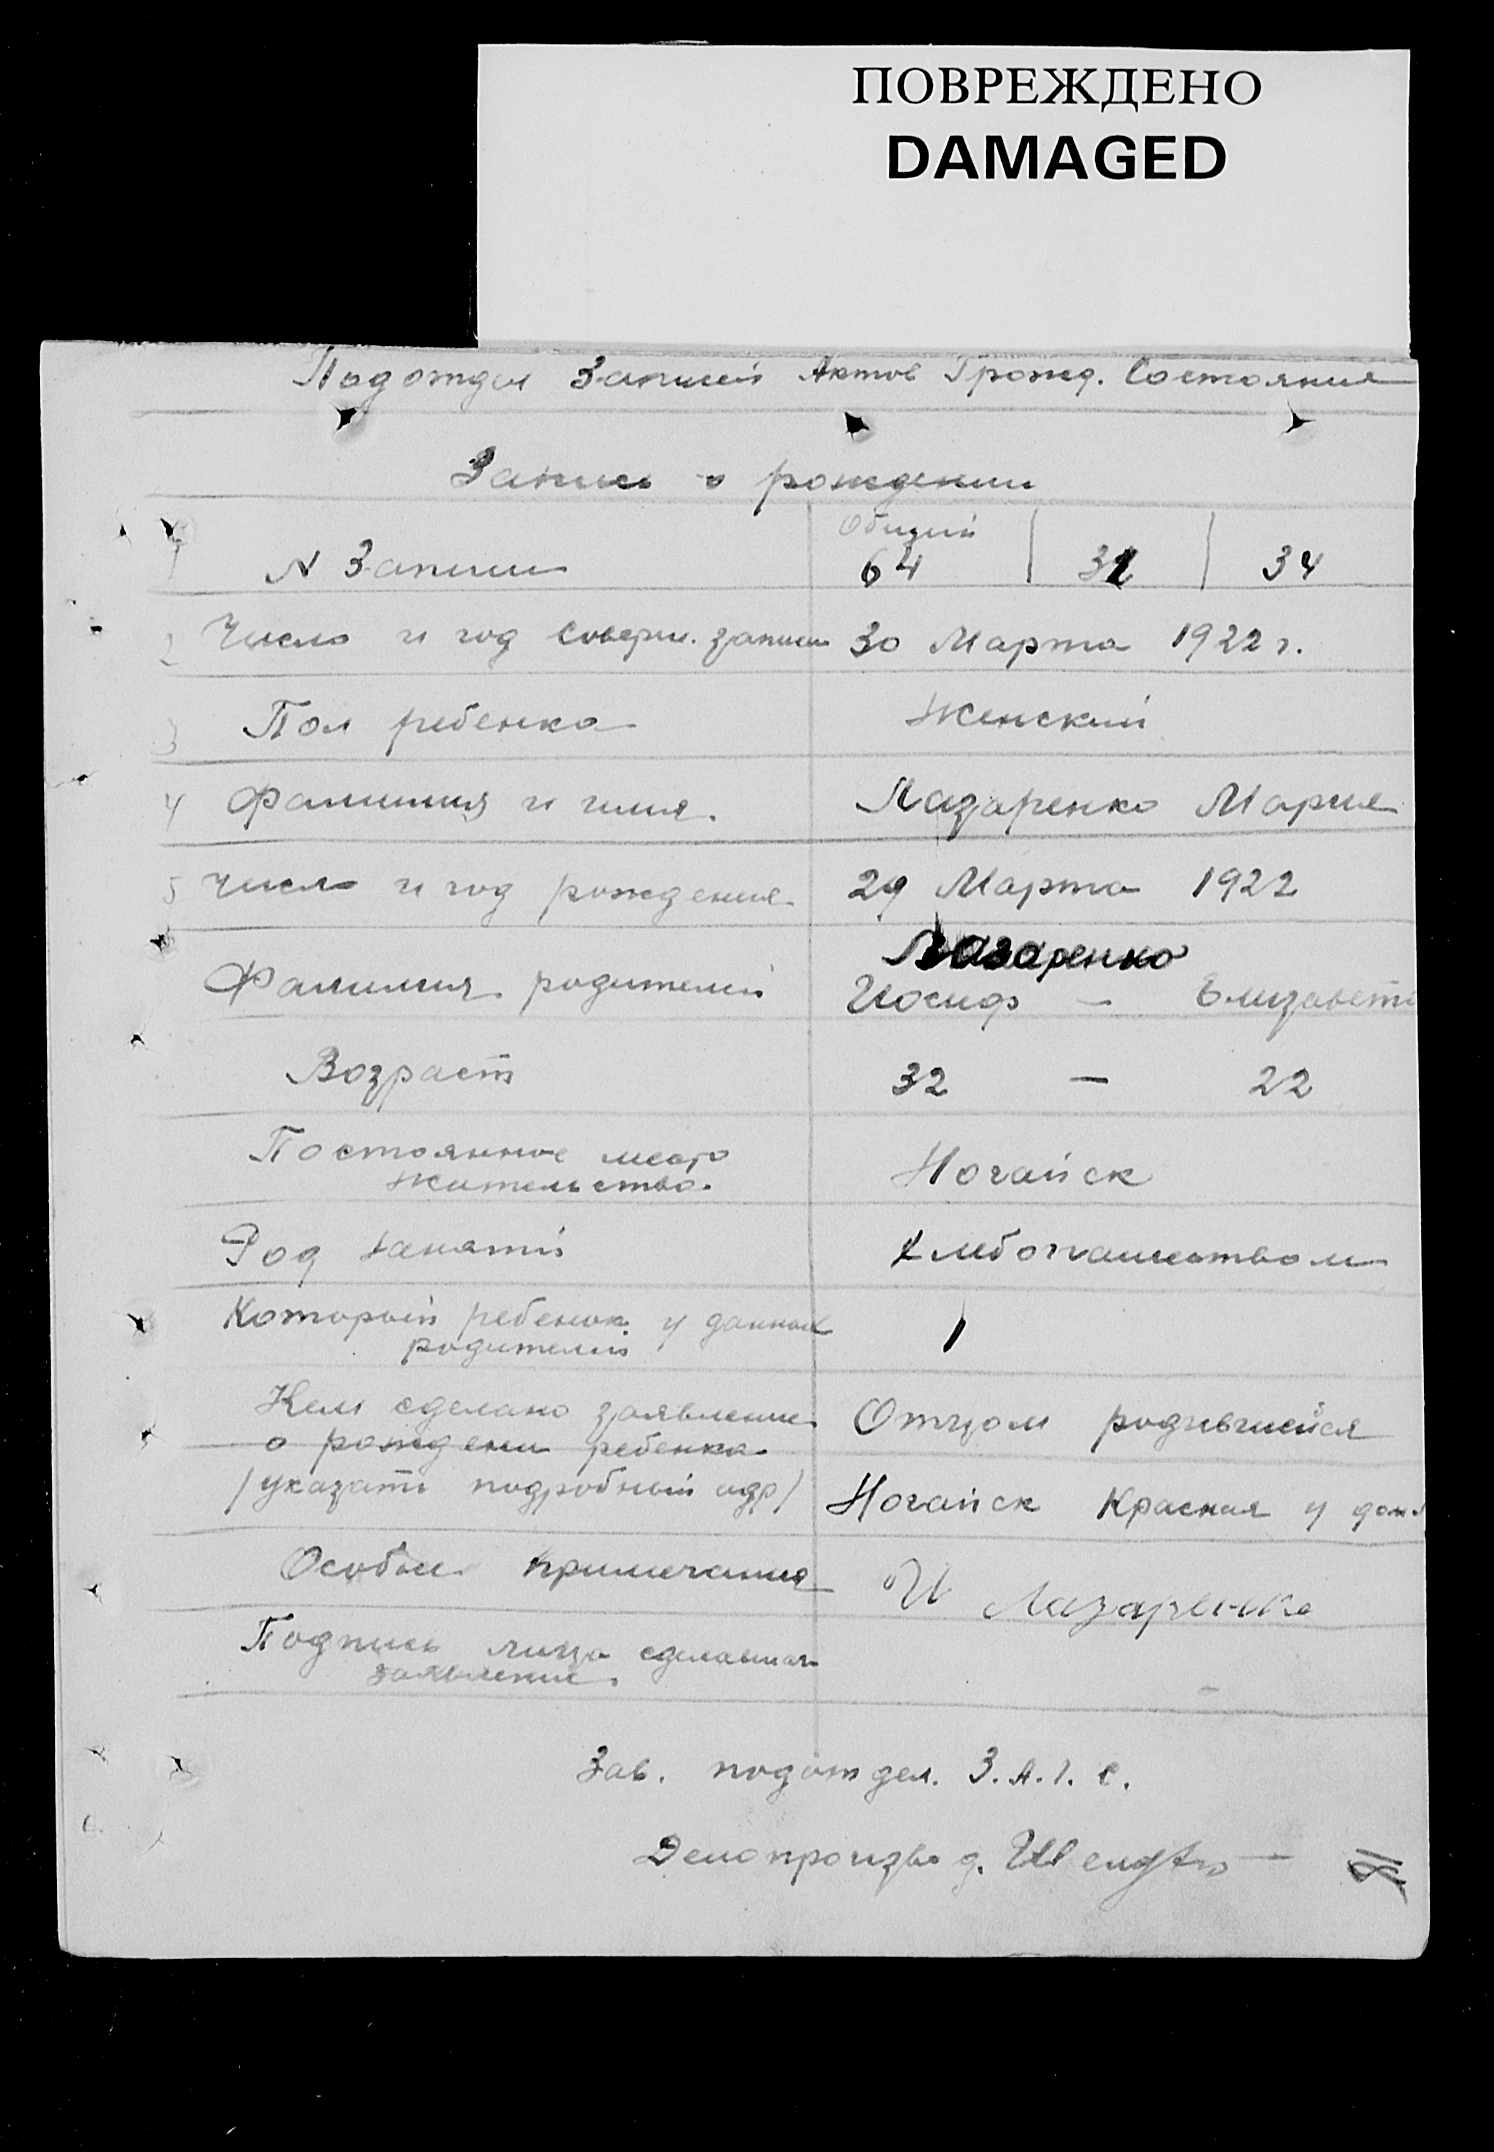 ПОВРЕЖДЕНО
DAMAGED
Подотдел Записей Актов Гражд. Состояния
Запись о рождении
Общий
1 N Записи 64 32 34
2 Число и год соверш. записи 30 Марта 1922 г.
3 Пол ребенка Женский
4 Фамилия и имя. Лазаренко Мария
5 Число и год рождения 29 Марта 1922
Лазаренко
Фамилия родителей Иосиф — Елизавета
Возраст 32 — 22
Постоянное место
жительство. Ногайск
Род занятий Хлебопашеством
Который ребенок у данных 1
родителей
Кем сделано заявление Отцом родившейся
о рождени ребенка
/указать подробный адр/ Ногайск Красная у дом
Особые примечания И Лазаренко
Подпись лица сделавшаго
заявление.
Зав. подотдел. З.А.Г.С.
Делопроизвод.